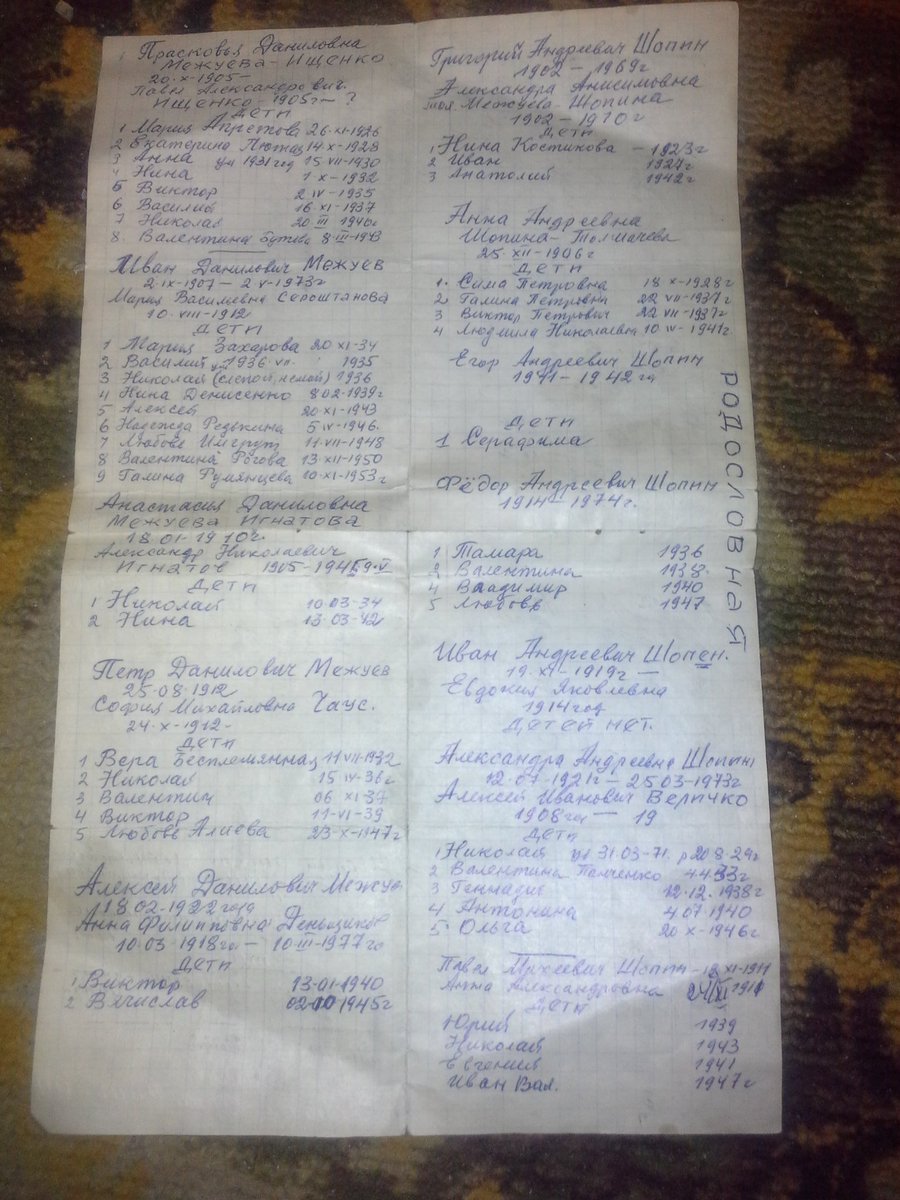 Прасковья Даниловна
Межуева-Ищенко
20·X-1905-
Павл Александрович
Ищенко-1905г-?
Дети
1 Мария 26·XI-1926
2 Екатерина 14·X-1928
3 Анна ум 1931 год 15 VII-1930
4 Нина 1-X-1932
5 Виктор 2 IV-1935
6 Василий 16 XI-1937
7 Николай 20 III 1940г
8. Валентина 8-III-1943
Иван Данилович Межуев
2·IX-1907- 2 V-1973г
Мария Василевна Сероштанова
10·VIII-1912
Дети
1 Мария Захарова 20 XI-34
2 Василий ум 1936·VII- 1935
3 Николай (слепой, немой) 1936
4 Нина Денисенко 8 02·1939г
5 Алексей 20 XI-1943
6 Надежда Редькина 5 IV-1946
7 Любовь 11·VII-1948
8 Валентина Рогова 13-XII-1950
9 Галина Румянцева 10-XI-1953г
Анастасия Даниловна
Межуева Игнатова
18·01·1910г·
Александр Николаевич
Игнатов 1905-1945г
Дети
1 Николай 10·03·34
2 Нина 13·03·42
Петр Данилович Межуев
25·08·1912
София Михайловна Чаус.
24·X-1912-
Дети
1 Вера Бесплемянная 11 VII-1932
2 Николай 15 IV-36г
3 Валентин 06 XI-37
4 Виктор 11-VI-39
5 Любовь Алиева 23-X-1947г
Алексей Данилович Межуе
18·02-1922 года
Анна Филипповна Деньщикова
10·03-1918го — 10-III-1977го
Дети
1 Виктор 13-01-1940
2 Вячислав 02·10 1945г
Григорий Андреевич Шопин
1902-1969г
Александра Анисимовна
тоя Межуева-Шопина
1902-1970г
Дети
1 Нина Костикова - 1923г
2 Иван 1927г
3 Анатолий 1942г
Анна Андреевна
Шопина-Толмачева
25-XII-1906г
Дети
1. Сима Петровна 18 X-1928г
2 Галина Петровна 22 VII-1937г
3 Виктор Петрович 22 VII-1937г
4 Людмила Николаевна 10 IV-1941г
Егор Андреевич Шопин
1911-1942 го
Дети
1 Серафима
Фёдор Андреевич Шопин
1914-1974г.
1 Тамара 1936
2 Валентина 1938
4 Владимир 1940
5 Любовь 1947
Иван Андреевич Шопен.
19·XI-1919г —
Евдокия Яковлевна
1914 год
Детей нет.
Александра Андреевна Шопин
12·07-1921г — 25 03-1973г
Алексей Иванович Величко
1908 го — 19
Дети
1 Николай ум 31·03-71. р 20 8·29г
2 Валентина Панченко 4 4 33г
3 Геннадий 12·12·1938г
4 Антонина 4·07·1940
5 Ольга 20 X-1946г
Павел Михеевич Шопин XI-1911
Анна Александровна 1911
Дети
Юрий 1939
Николай 1943
Евгений 1941
Иван Вал. 1947г
РОДОСЛОВНАЯ